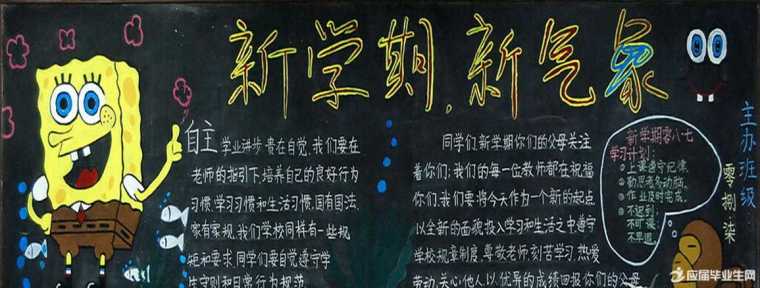 新学期,新气象
自主 学业进步,贵在自觉,我们要在
老师的指引下,培养自己的良好行为
习惯,学习习惯和生活习惯,国有国法,
家有家规,我们学校同样有一些规
矩和要求,同学们要自觉遵守学
生守则和日常行为规范
同学们,新学期你们的父母关注
着你们;我们的每一位教师都在祝福
你们,我们要将今天作为一个新的起点
以全新的面貌,投入学习和生活之中遵守
学校规章制度,尊敬老师,刻苦学习,热爱
劳动,关心他人,以优异的成绩回报你们的父母
新学期零八·七
学习计划:
上课遵守纪律,
勤思考多动脑,
作业及时完成,
不迟到;
不旷课;
不早退;
主办班级
零捌柒
应届毕业生网